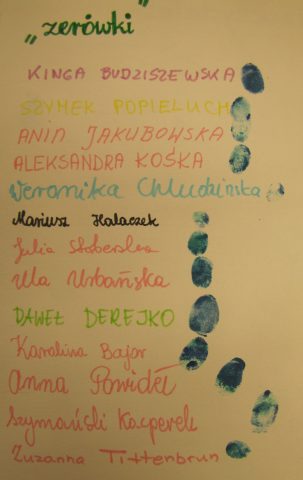 „zerówki”
KINGA BUDZISZEWSKA
SZYMEK POPIELUCH
ANIA JAKUBOWSKA
ALEKSANDRA KOŚKA
Weronika Chludzińska
Mariusz Halaczek
Julia
Ula Urbańska
DAWEŁ DEREJKO
Karolina Bajor
Anna Powideł
Szymański Kacperek
Zuzanna Tittenbrun